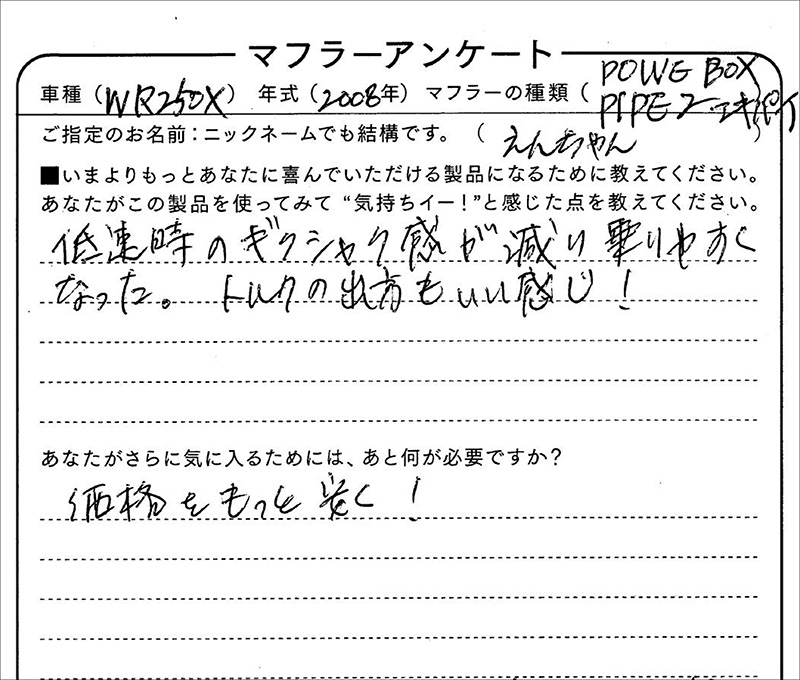 マフラーアンケート
車種（WR250X） 年式（2008年） マフラーの種類（POWE BOX
PIPE エキパイ）
ご指定のお名前：ニックネームでも結構です。（えんちゃん
■いまよりもっとあなたに喜んでいただける製品になるために教えてください。
あなたがこの製品を使ってみて “気持ちイー！”と感じた点を教えてください。
低速時のギクシャク感が減り乗りやすく
なった。トルクの出方もいい感じ！
あなたがさらに気に入るためには、あと何が必要ですか？
価格をもっと安く！